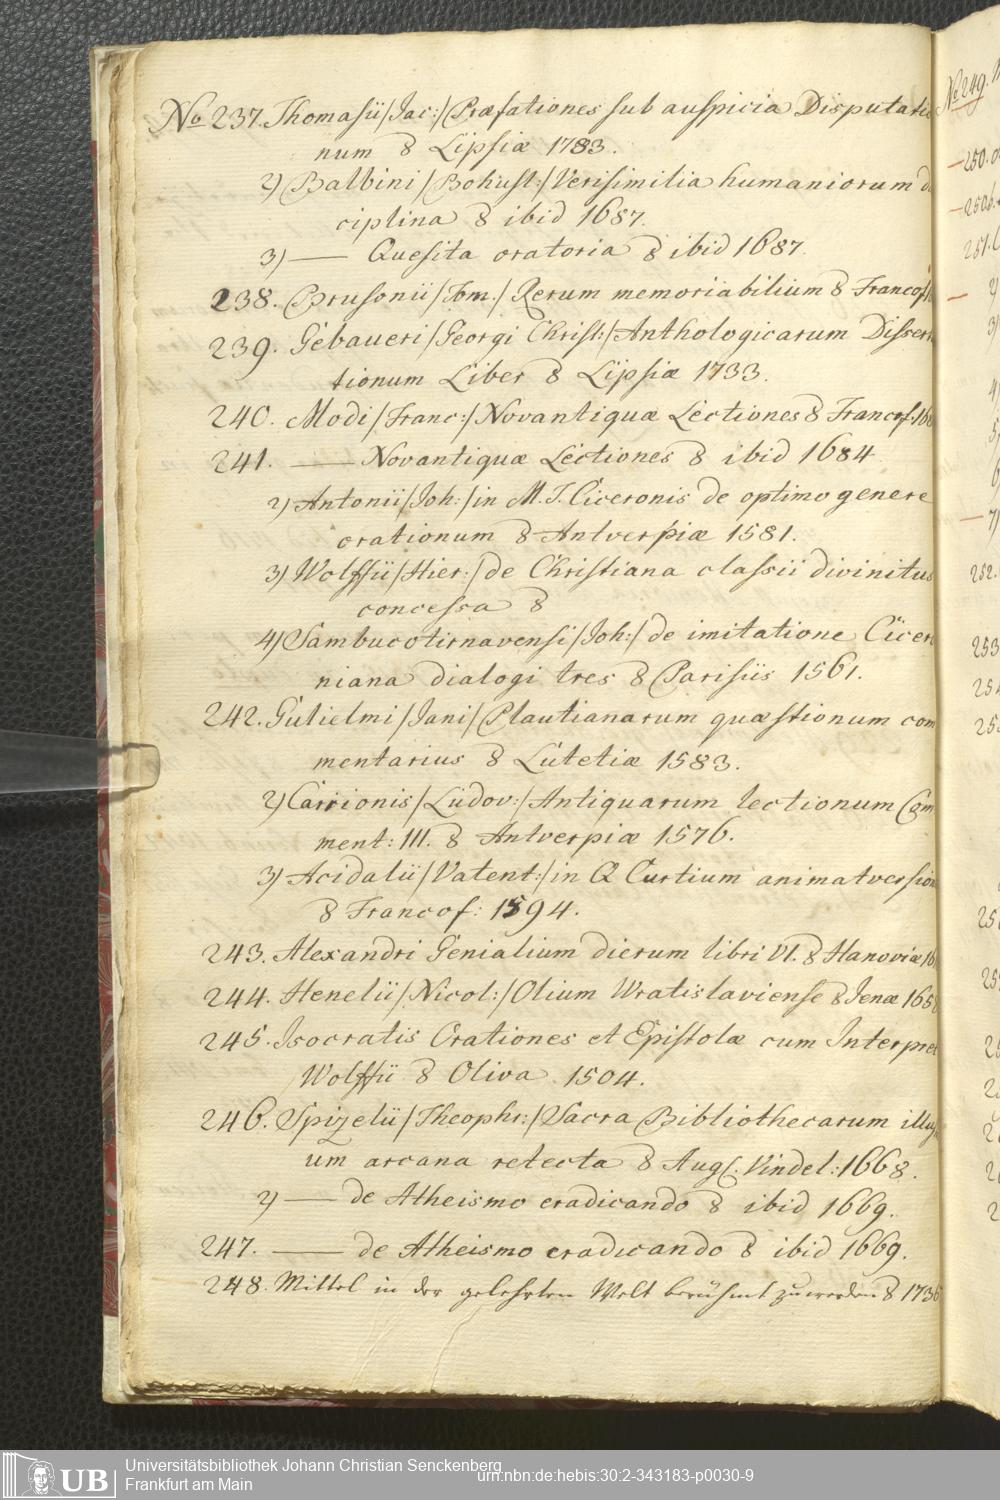 No 237. Thomasii/Jac:/Præfationes sub auspicia Disputatio
num 8 Lipsiæ 1783.
2) Balbini/Bohusl:/Verisimilia humaniorum di
ciplina 8 ibid 1687.
3) — Quesita oratoria 8 ibid 1687.
238. Brusonii/Dom./Rerum memoriabilium 8 Francof
239. Gebaueri/Georgi Christ:/Anthologicarum Disserta
tionum Liber 8 Lipsiæ 1733.
240. Modi/Franc:/Novantiquæ Lectiones 8 Francof.
241. — Novantiquæ Lectiones 8 ibid 1684
2) Antonii/Joh:/in M. T. Ciceronis de optimo genere
orationum 8 Antverpiæ 1581.
3) Wolffii/Hier:/de Christiana classii divinitus
concessa 8
4) Sambucotirnavensi/Joh:/de imitatione Cicero
niana dialogi tres 8 Parisiis 1561.
242. Gulielmi/Jani/Plautianarum quæstionum com
mentarius 8 Lutetiæ 1583.
2) Carrionis/Ludov:/Antiquarum lectionum Com
ment: III. 8 Antverpiæ 1576.
3) Acidalii/Vatent:/in Q Curtium animatversion
8 Francof: 1594.
243. Alexandri Genialium dierum libri VI. 8 Hanoviæ 16
244. Henelii/Nicol:/Otium Wratislaviense 8 Jenæ 1658
245. Isocratis Orationes et Epistolæ cum Interpret
Wolffii 8 Oliva 1504.
246. Spizelii/Theoph:/Sacra Bibliothecarum illustri
um arcana retecta 8 Aug. Vindel: 1668.
2) — de Atheismo eradicando 8 ibid 1669.
247. — de Atheismo eradicando 8 ibid 1669.
248. Mittel in der gelehrten Welt berühmt zu werden 8 1736
No 249.
250.
250b.
251.
2)
3)
4)
5)
6)
7)
252.
253
254
255
UB
Universitätsbibliothek Johann Christian Senckenberg
Frankfurt am Main
urn:nbn:de:hebis:30:2-343183-p0030-9